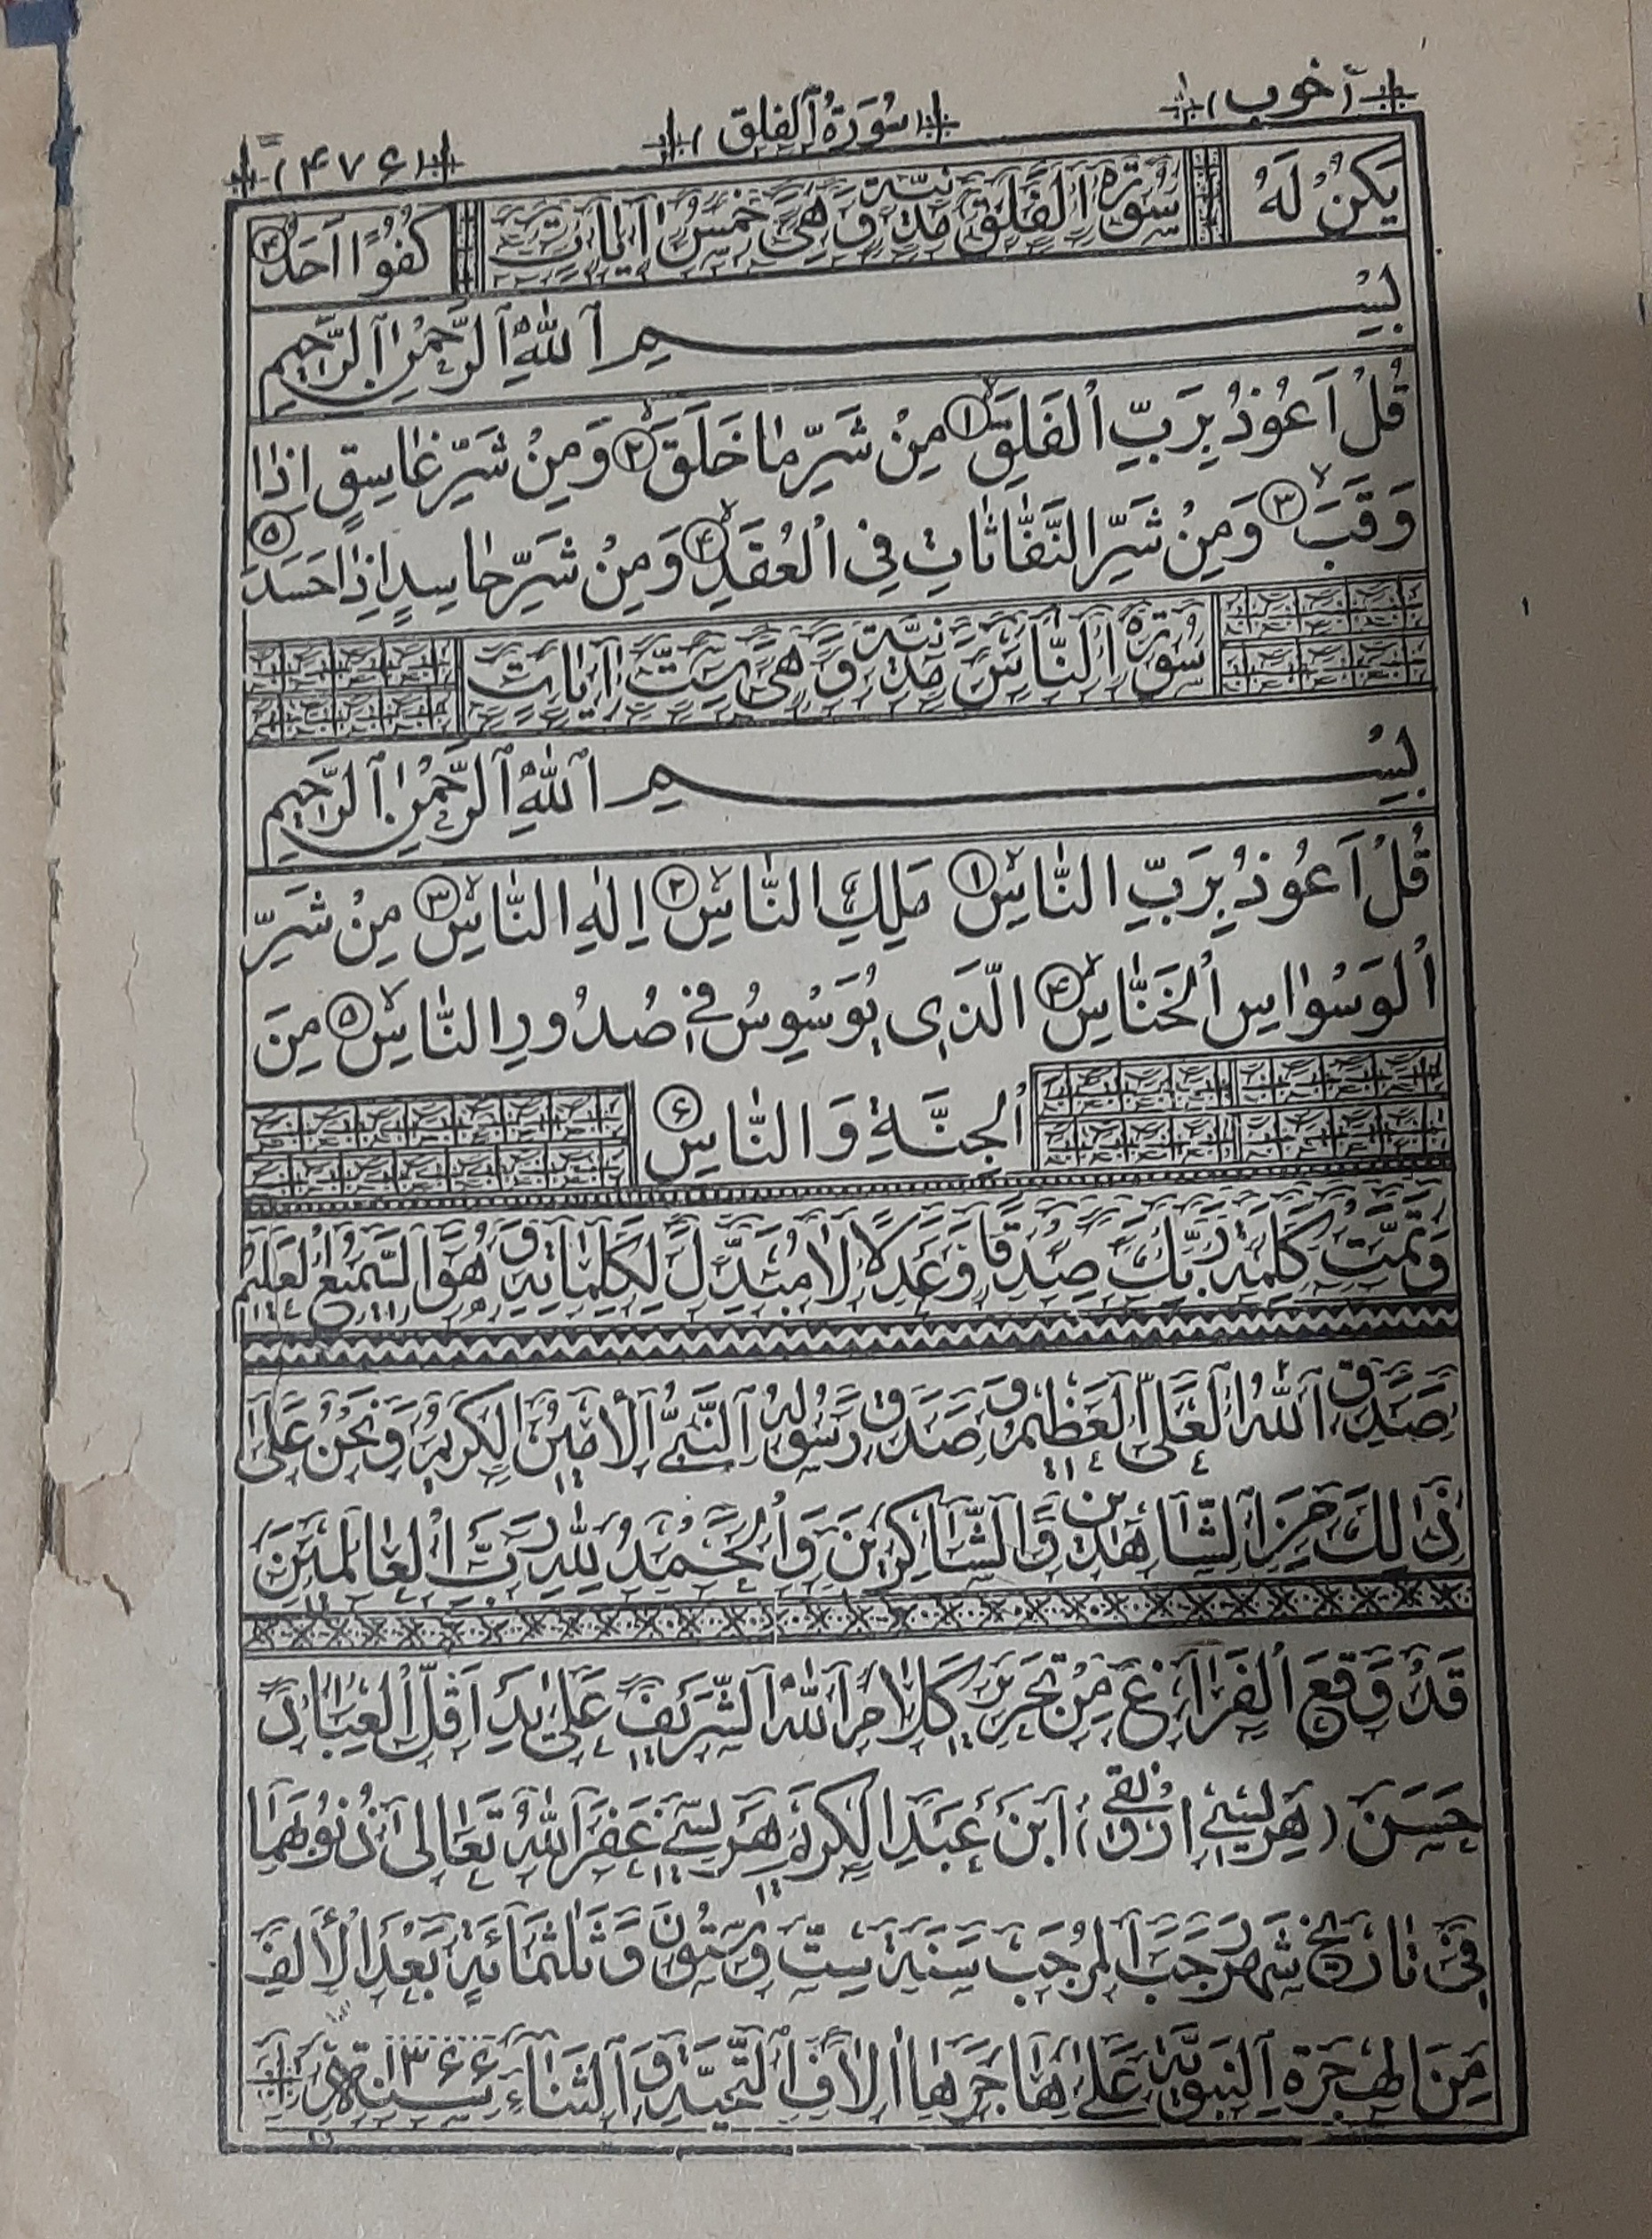 (خوب) سُورَةُ ٱلفلق (۴۷۶)
يَكُنْ لَهُ سُورَةُ الْفَلَقِ مَدَنِيَّةٌ وَهِيَ خَمْسُ اٰيَاتٍ كُفُوًا اَحَدٌ ۴
بِسْمِ ٱللّٰهِ ٱلرَّحْمٰنِ ٱلرَّحِيمِ
قُلْ اَعُوذُ بِرَبِّ ٱلْفَلَقِ ۱ مِنْ شَرِّ مٰا خَلَقَ ۲ وَمِنْ شَرِّ غٰاسِقٍ اِذٰا
وَقَبَ ۳ وَمِنْ شَرِّ النَّفّٰاثٰاتِ فِى الْعُقَدِ ۴ وَمِنْ شَرِّ حٰاسِدٍ اِذٰا حَسَدَ ۵
سُورَةُ النّٰاسِ مَدَنِيَّةٌ وَهِيَ سِتُّ اٰيٰاتٍ
بِسْمِ ٱللّٰهِ ٱلرَّحْمٰنِ ٱلرَّحِيمِ
قُلْ اَعُوذُ بِرَبِّ النّٰاسِ ۱ مَلِكِ النّٰاسِ ۲ اِلٰهِ النّٰاسِ ۳ مِنْ شَرِّ
ٱلْوَسْوٰاسِ ٱلْخَنّٰاسِ ۴ الَّذِى يُوَسْوِسُ فِى صُدُورِ النّٰاسِ ۵ مِنَ
ٱلْجِنَّةِ وَالنّٰاسِ ۶
وَتَمَّتْ كَلِمَةُ رَبِّكَ صِدْقًا وَعَدْلًا لٰا مُبَدِّلَ لِكَلِمٰاتِهِ وَهُوَ السَّمِيعُ الْعَلِيمُ
صَدَقَ ٱللّٰهُ الْعَلِىُّ الْعَظِيمُ وَصَدَقَ رَسُولُهُ النَّبِىُّ الْأَمِينُ الْكَرِيمُ وَنَحْنُ عَلىٰ
ذٰالِكَ مِنَ الشّٰاهِدِينَ وَالشّٰاكِرِينَ وَالْحَمْدُ لِلّٰهِ رَبِّ الْعٰالَمِينَ
قَدْ وَقَعَ الْفَرٰاغُ مِنْ تَحْرِيرِ كَلٰامِ اللّٰهِ الشَّرِيفِ عَلىٰ يَدِ اَقَلِّ الْعِبٰادِ
حَسَن (هريسى ارونقى) ابْنِ عَبْدِ الْكَرِيمِ هَرِيسى غَفَرَ اللّٰهُ تَعٰالىٰ ذُنُوبَهُمٰا
فِى تٰارِيخِ شَهْرِ رَجَبِ الْمُرَجَّبِ سَنَةِ سِتٍّ وَسِتُّونَ وَثَلٰثُمِائَةٍ بَعْدَ الْأَلْفِ
مِنَ الْهِجْرَةِ النَّبَوِيَّةِ عَلىٰ هٰاجِرِهٰا اٰلٰافُ التَّحِيَّةِ وَالثَّنٰاءِ سنة ۱۳۶۶